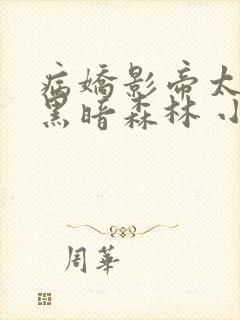 病嬌影帝太
黑暗森林 小
周華